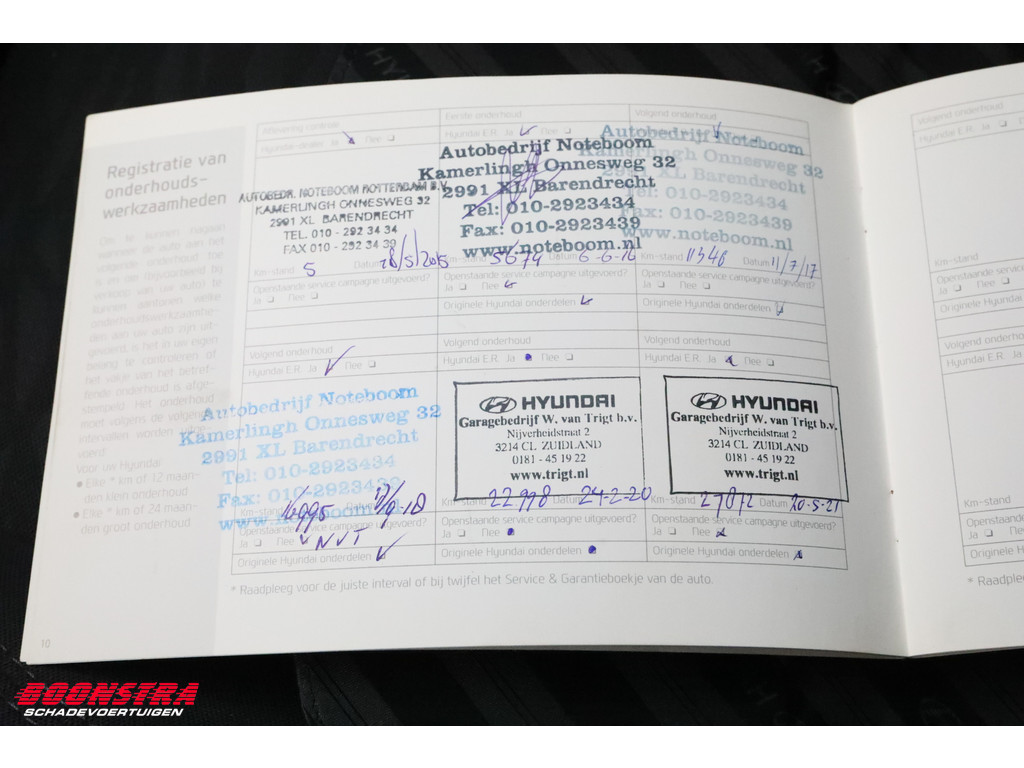 Registratie van
onderhouds-
werkzaamheden
Om te kunnen nagaan
wanneer de auto aan het
volgende onderhoud toe
is en de (bijvoorbeeld bij
verkoop van uw auto) te
kunnen aantonen welke
onderhoudswerkzaamhe-
den aan uw auto zijn uit-
gevoerd, is het in uw eigen
belang te controleren of
het vakje van het betref-
fende onderhoud is afge-
stempeld. Het onderhoud
moet volgens de volgende
intervallen worden uitge-
voerd:
Voor uw Hyundai
• Elke * km of 12 maan-
den klein onderhoud
• Elke * km of 24 maan-
den groot onderhoud
10
Aflevering controle
Hyundai-dealer: Ja Nee
AUTOBEDR. NOTEBOOM ROTTERDAM B.V.
KAMERLINGH ONNESWEG 32
2991 XL BARENDRECHT
TEL. 010 - 292 34 34
FAX 010 - 292 34 39
Km-stand 5 Datum 28/5/2015
Openstaande service campagne uitgevoerd?
Ja Nee
Eerste onderhoud
Hyundai E.R. Ja Nee
Autobedrijf Noteboom
Kamerlingh Onnesweg 32
2991 XL Barendrecht
Tel: 010-2923434
Fax: 010-2923439
www.noteboom.nl
Km-stand 5674 Datum 6-6-16
Openstaande service campagne uitgevoerd?
Ja Nee
Originele Hyundai onderdelen
Volgend onderhoud
Autobedrijf Noteboom
Kamerlingh Onnesweg 32
2991 XL Barendrecht
Tel: 010-2923434
Fax: 010-2923439
www.noteboom.nl
Km-stand 11348 Datum 11/7/17
Openstaande service campagne uitgevoerd?
Ja Nee
Originele Hyundai onderdelen
Volgend onderhoud
Hyundai E.R. Ja Nee
Autobedrijf Noteboom
Kamerlingh Onnesweg 32
2991 XL Barendrecht
Tel: 010-2923434
Fax: 010-2923439
www.noteboom.nl
Km-stand Datum
Openstaande service campagne uitgevoerd?
Ja Nee NVT
Originele Hyundai onderdelen
Volgend onderhoud
Hyundai E.R. Ja Nee
HYUNDAI
Garagebedrijf W. van Trigt b.v.
Nijverheidstraat 2
3214 CL ZUIDLAND
0181 - 45 19 22
www.trigt.nl
Km-stand 22998 Datum 24-2-20
Openstaande service campagne uitgevoerd?
Ja Nee
Originele Hyundai onderdelen
Volgend onderhoud
Hyundai E.R. Ja Nee
HYUNDAI
Garagebedrijf W. van Trigt b.v.
Nijverheidstraat 2
3214 CL ZUIDLAND
0181 - 45 19 22
www.trigt.nl
Km-stand 27072 Datum 20-5-21
Openstaande service campagne uitgevoerd?
Ja Nee
Originele Hyundai onderdelen
* Raadpleeg voor de juiste interval of bij twijfel het Service & Garantieboekje van de auto.
Volgend onderhoud
Hyundai E.R. Ja
Km-stand
Openstaande servic
Ja Nee
Originele Hyundai o
Volgend onderhoud
Hyundai E.R. Ja
Km-stand
Openstaande
Ja Nee
Originele H
* Raadplee
BOONSTRA
SCHADEVOERTUIGEN